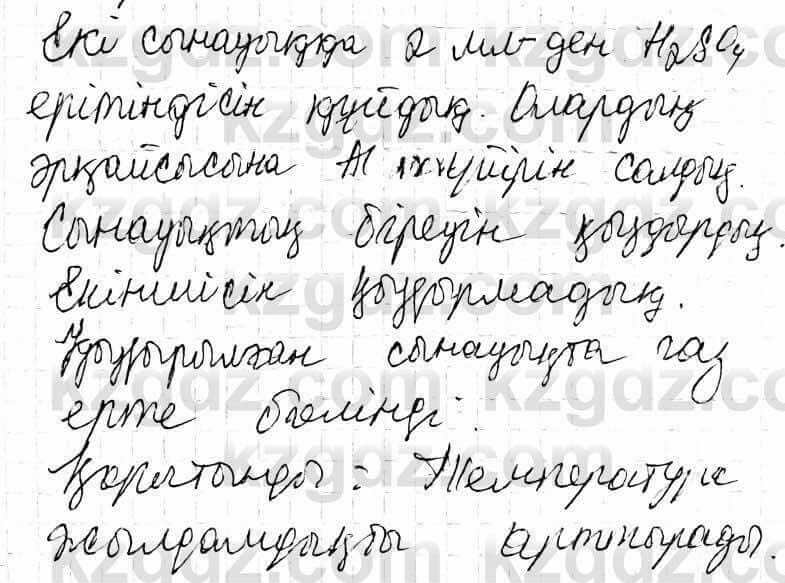 Екі сынауыққа 2 мл-ден H₂SO₄
ерітіндісін құйдық. Олардың
әрқайсысына Al түйірін салдық.
Сынауықтың біреуін қыздырдық.
Екіншісін қыздырмадық.
Қыздырылған сынауықта газ
ерте бөлінді.
Қорытынды: Температура
жылдамдықты арттырады.